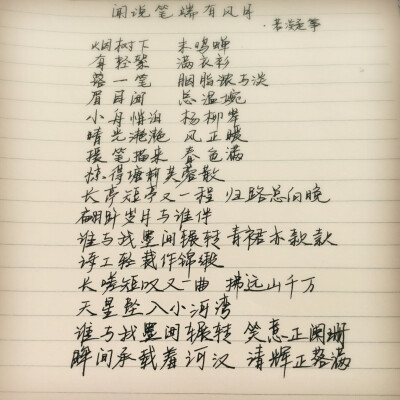 闻说笔端有风月
烟树下 未鸣蝉
有轻絮 满衣衫
落一笔 胭脂浓与淡
眉目间 总温婉
小舟悄泊 杨柳岸
晴光滟滟 风正暖
提笔描来 春色满
惊得塘前芙蓉散
长亭短亭又一程 归路总向晚
翩跹岁月与谁伴
谁与我墨间辗转 青裙亦款款
诗工轻裁作锦缎
长嗟短叹又一曲 拂远山千万
天星坠入小河湾
谁与我墨间辗转 笑意正阑珊
瞬间承载着河汉 清辉正落满